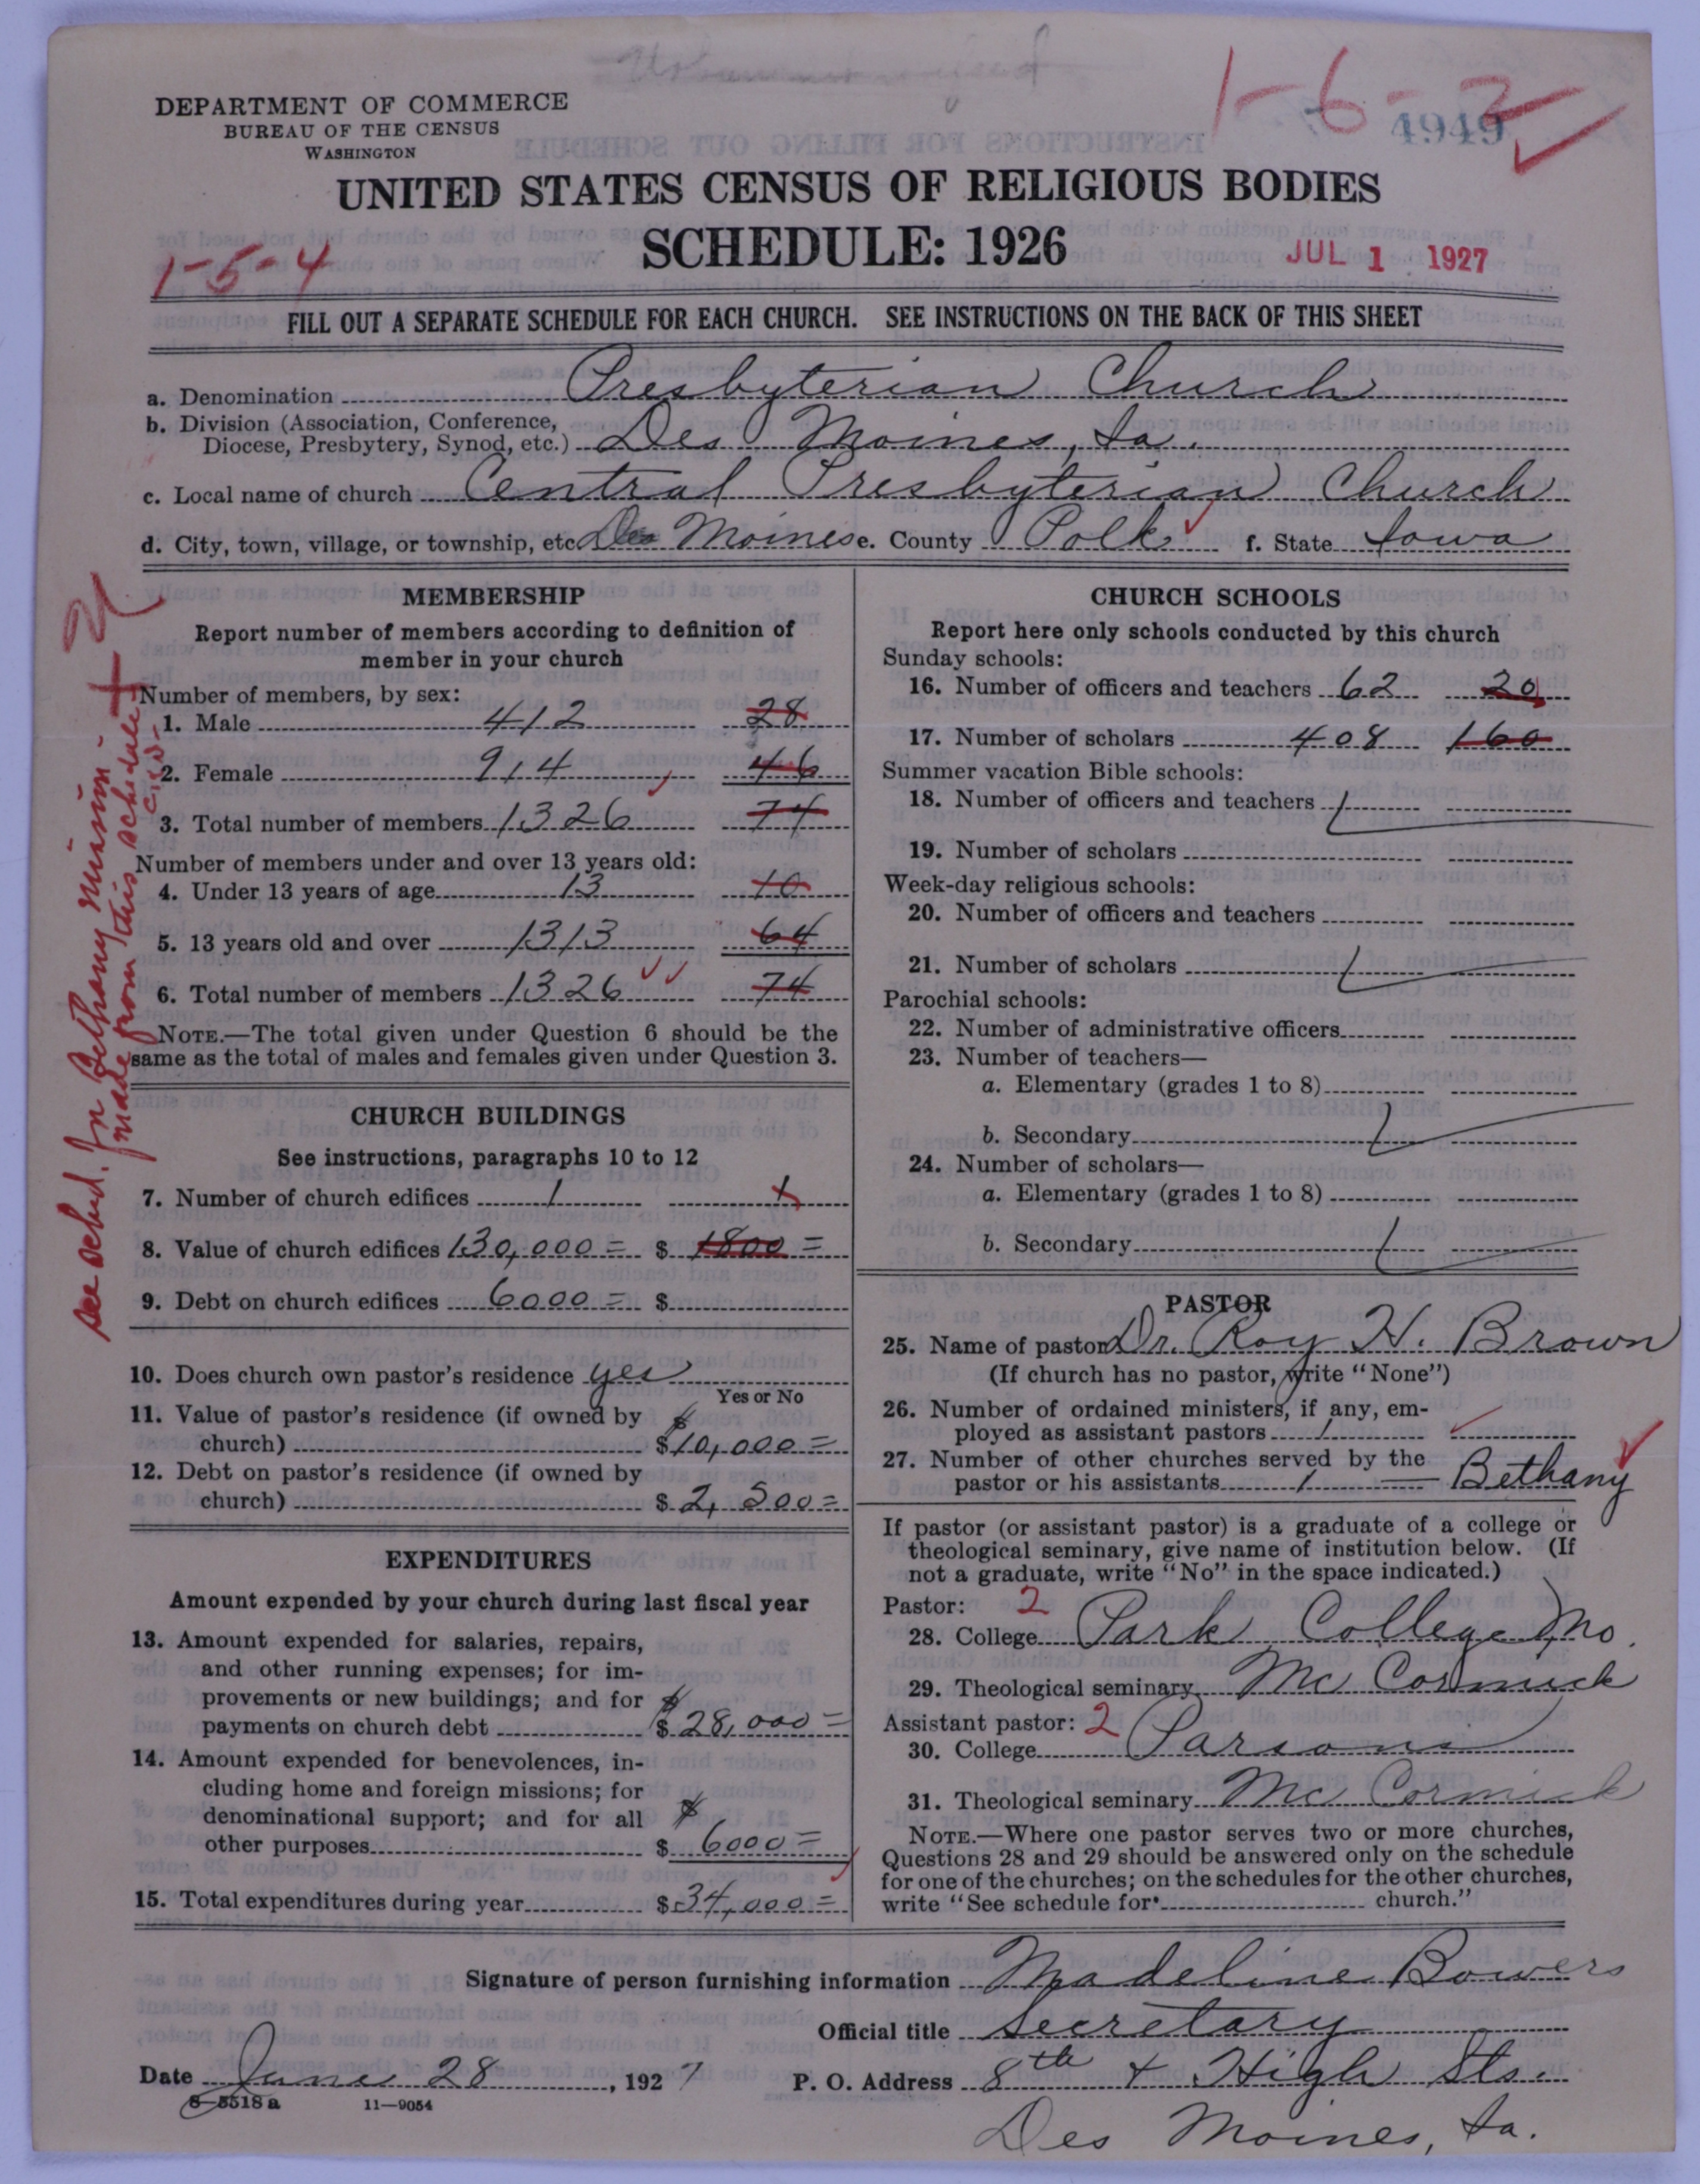 1-6-2
DEPARTMENT OF COMMERCE
BUREAU OF THE CENSUS
WASHINGTON
4949
UNITED STATES CENSUS OF RELIGIOUS BODIES
SCHEDULE: 1926
1-5-4
JUL 1 1927
FILL OUT A SEPARATE SCHEDULE FOR EACH CHURCH. SEE INSTRUCTIONS ON THE BACK OF THIS SHEET
a. Denomination Presbyterian Church
b. Division (Association, Conference,
Diocese, Presbytery, Synod, etc.) Des Moines, Ia.
c. Local name of church Central Presbyterian Church
d. City, town, village, or township, etc. Des Moines e. County Polk f. State Iowa
see sched. for Bethany Mission
made from this schedule
MEMBERSHIP
Report number of members according to definition of
member in your church
Number of members, by sex:
1. Male 412 28
2. Female 914 46
3. Total number of members 1326 74
Number of members under and over 13 years old:
4. Under 13 years of age 13 10
5. 13 years old and over 1313 64
6. Total number of members 1326 74
NOTE.—The total given under Question 6 should be the
same as the total of males and females given under Question 3.
CHURCH BUILDINGS
See instructions, paragraphs 10 to 12
7. Number of church edifices 1 1
8. Value of church edifices 130,000= $ 1800=
9. Debt on church edifices 6000= $
10. Does church own pastor's residence yes
Yes or No
11. Value of pastor's residence (if owned by $
church) $10,000=
12. Debt on pastor's residence (if owned by
church) $2,500=
EXPENDITURES
Amount expended by your church during last fiscal year
13. Amount expended for salaries, repairs,
and other running expenses; for im-
provements or new buildings; and for $
payments on church debt $28,000=
14. Amount expended for benevolences, in-
cluding home and foreign missions; for
denominational support; and for all $
other purposes $6000=
15. Total expenditures during year $34,000=
CHURCH SCHOOLS
Report here only schools conducted by this church
Sunday schools:
16. Number of officers and teachers 62 20
17. Number of scholars 408 160
Summer vacation Bible schools:
18. Number of officers and teachers
19. Number of scholars
Week-day religious schools:
20. Number of officers and teachers
21. Number of scholars
Parochial schools:
22. Number of administrative officers
23. Number of teachers—
a. Elementary (grades 1 to 8)
b. Secondary
24. Number of scholars—
a. Elementary (grades 1 to 8)
b. Secondary
PASTOR
25. Name of pastor Dr. Roy H. Brown
(If church has no pastor, write "None")
26. Number of ordained ministers, if any, em-
ployed as assistant pastors 1
27. Number of other churches served by the
pastor or his assistants 1 — Bethany
If pastor (or assistant pastor) is a graduate of a college or
theological seminary, give name of institution below. (If
not a graduate, write "No" in the space indicated.)
Pastor: 2
28. College Park College, Mo.
29. Theological seminary McCormick
Assistant pastor: 2
30. College Parsons
31. Theological seminary McCormick
NOTE.—Where one pastor serves two or more churches,
Questions 28 and 29 should be answered only on the schedule
for one of the churches; on the schedules for the other churches,
write "See schedule for church."
Signature of person furnishing information Madeline Bowers
Official title Secretary
Date June 28, 1927 P. O. Address 8th & High Sts.
8-5518 a 11—9054
Des Moines, Ia.